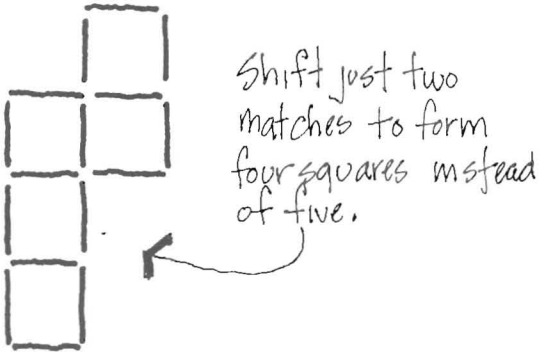 Shift just two
matches to form
four squares instead
of five.